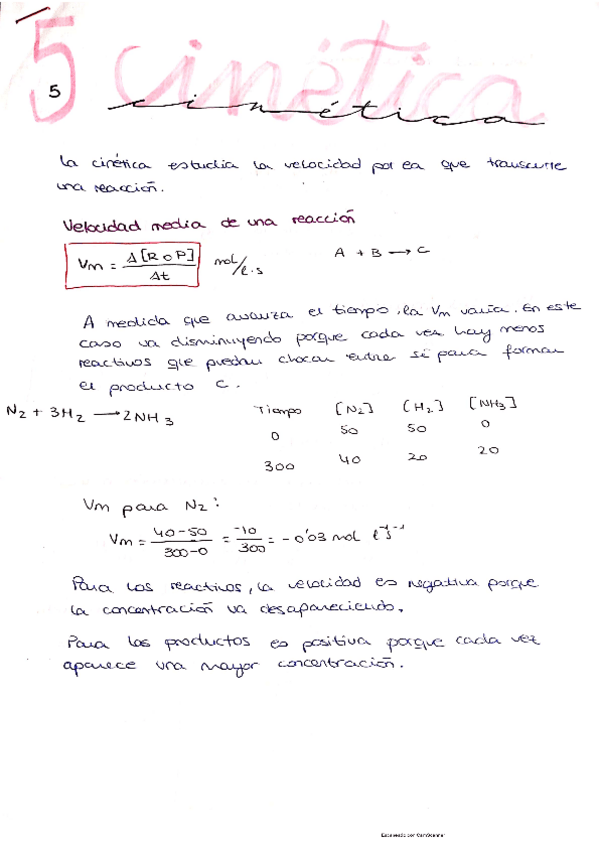 5 cinética
5 cinética
La cinética estudia la velocidad por la que transcurre
una reacción.
Velocidad media de una reacción
Vm = Δ[R o P] / Δt mol/l·s A + B → C
A medida que avanza el tiempo, la Vm varía. En este
caso va disminuyendo porque cada vez hay menos
reactivos que puedan chocar entre si para formar
el producto C.
N₂ + 3H₂ → 2NH₃ Tiempo [N₂] [H₂] [NH₃]
0 50 50 0
300 40 20 20
Vm para N₂:
Vm = 40-50 / 300-0 = -10 / 300 = -0'03 mol l⁻¹s⁻¹
Para los reactivos, la velocidad es negativa porque
la concentración va desapareciendo.
Para los productos es positiva porque cada vez
aparece una mayor concentración.
Escaneado con CamScanner